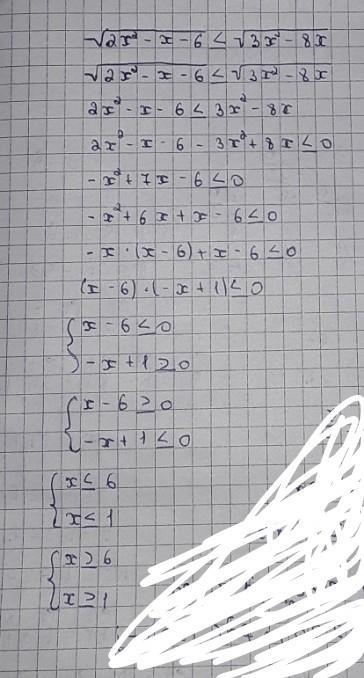 √2x² - x - 6 ≤ √3x² - 8x
√2x² - x - 6 ≤ √3x² - 8x
2x² - x - 6 ≤ 3x² - 8x
2x² - x - 6 - 3x² + 8x ≤ 0
- x² + 7x - 6 ≤ 0
- x² + 6x + x - 6 ≤ 0
- x · (x - 6) + x - 6 ≤ 0
(x - 6) · (- x + 1) ≤ 0
{ x - 6 ≤ 0
- x + 1 ≥ 0
{ x - 6 ≥ 0
- x + 1 ≤ 0
{ x ≤ 6
x ≤ 1
{ x ≥ 6
x ≥ 1